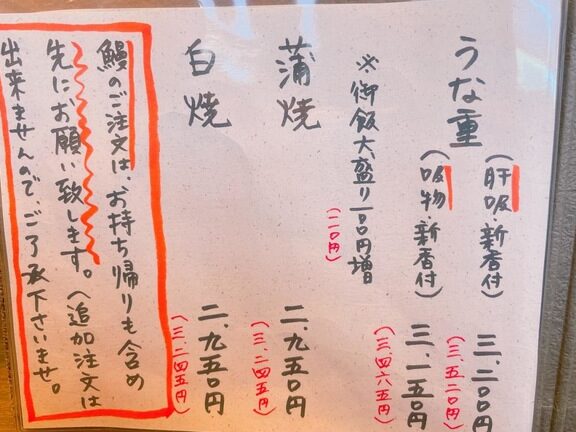 うな重
(肝吸・新香付) 三、二〇〇円
(三、五二〇円)
(吸物・新香付) 三、一五〇円
(三、四六五円)
※御飯大盛り一〇〇円増
(一一〇円)
蒲焼 二、九五〇円
(三、二四五円)
白焼 二、九五〇円
(三、二四五円)
鰻のご注文は、お持ち帰りも含め
先にお願い致します。(追加注文は
出来ませんので、ご了承下さいませ。